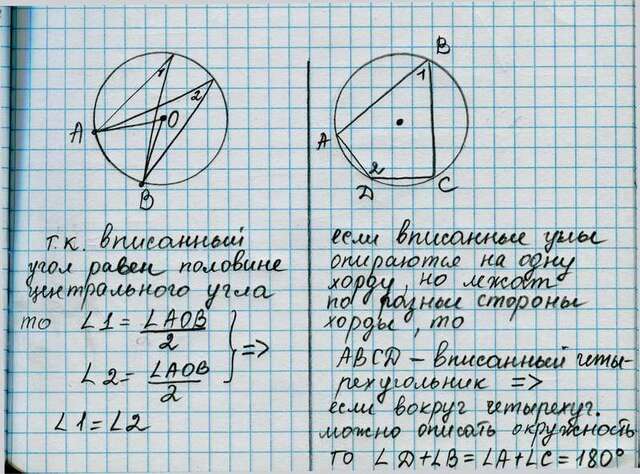 1
2
O
A
B
т.к. вписанный
угол равен половине
центрального угла
то ∠1 = ∠AOB/2
∠2 = ∠AOB/2
=>
∠1 = ∠2
B
1
A
2
D
C
если вписанные углы
опираются на одну
хорду, но лежат
по разные стороны
хорды, то
ABCD – вписанный четы-
рехугольник =>
если вокруг четырехуг.
можно описать окружность
то ∠D+∠B=∠A+∠C=180°